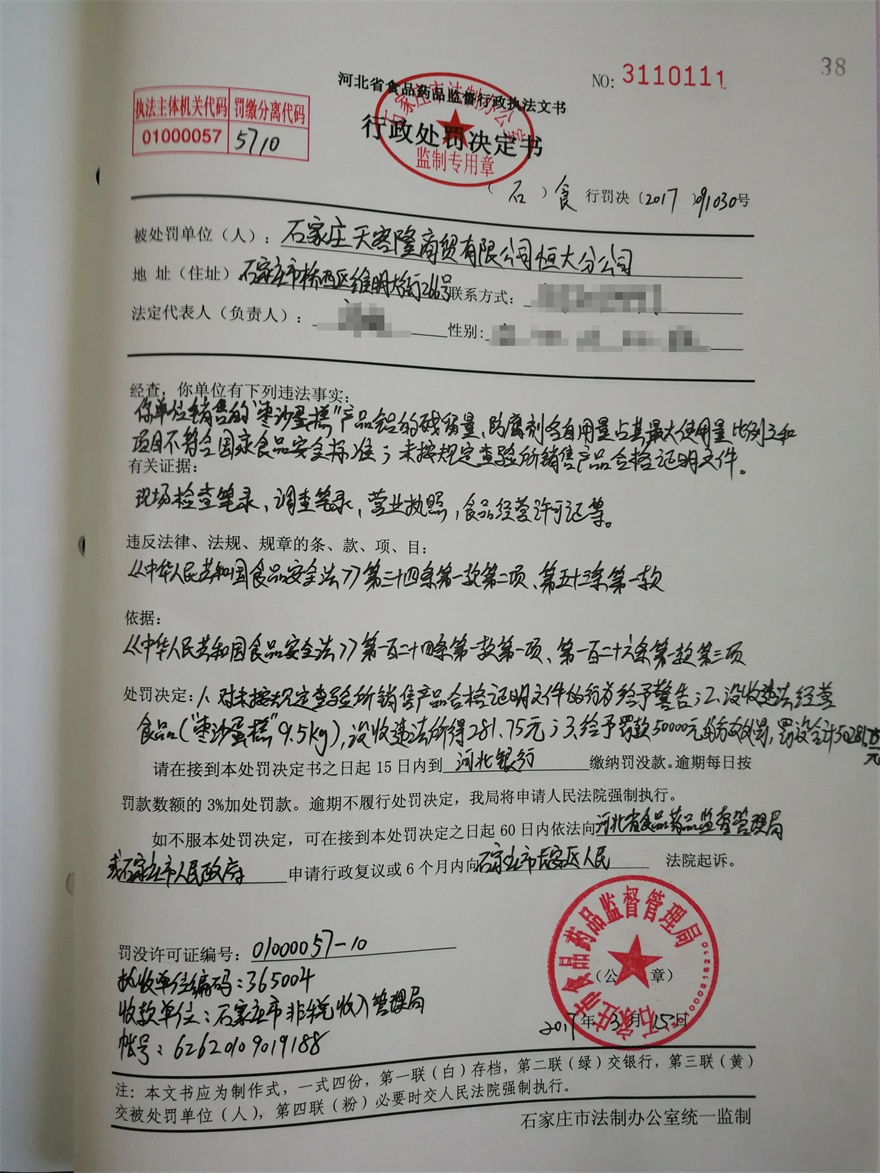 38
NO: 3110111
河北省食品药品监督行政执法文书
执法主体机关代码 罚缴分离代码
01000057 5710
石家庄市法制办公室
监制专用章
行政处罚决定书
（石）食 行罚决〔2017〕091030号
被处罚单位（人）：石家庄天客隆商贸有限公司恒大分公司
地 址（住址）石家庄市桥西区维明大街266号 联系方式：
法定代表人（负责人）： 性别:
经查，你单位有下列违法事实：
你单位销售的“枣沙蛋糕”产品铝的残留量、防腐剂各自用量占其最大使用量比例之和
项目不符合国家食品安全标准；未按规定查验所销售产品合格证明文件。
有关证据：
现场检查笔录、调查笔录、营业执照，食品经营许可证等。
违反法律、法规、规章的条、款、项、目：
《中华人民共和国食品安全法》第三十四条第一款第二项、第五十三条第一款
依据：
《中华人民共和国食品安全法》第一百二十四条第一款第一项、第一百二十六条第一款第三项
处罚决定：1、对未按规定查验所销售产品合格证明文件的行为给予警告；2、没收违法经营
食品（“枣沙蛋糕”9.5kg），没收违法所得281.75元；3、给予罚款50000元的行政处罚，罚没合计50281.75元
请在接到本处罚决定书之日起 15 日内到 河北银行 缴纳罚没款。逾期每日按
罚款数额的 3%加处罚款。逾期不履行处罚决定，我局将申请人民法院强制执行。
如不服本处罚决定，可在接到本处罚决定之日起 60 日内依法向河北省食品药品监督管理局
或石家庄市人民政府 申请行政复议或 6 个月内向石家庄市长安区人民 法院起诉。
罚没许可证编号：01000057-10
执收单位编码：365004
收款单位：石家庄市非税收入管理局
帐号：62620109019188
石家庄市食品药品监督管理局
（公 章）
2017年3月15日
注：本文书应为制作式，一式四份，第一联（白）存档，第二联（绿）交银行，第三联（黄）
交被处罚单位（人），第四联（粉）必要时交人民法院强制执行。
石家庄市法制办公室统一监制